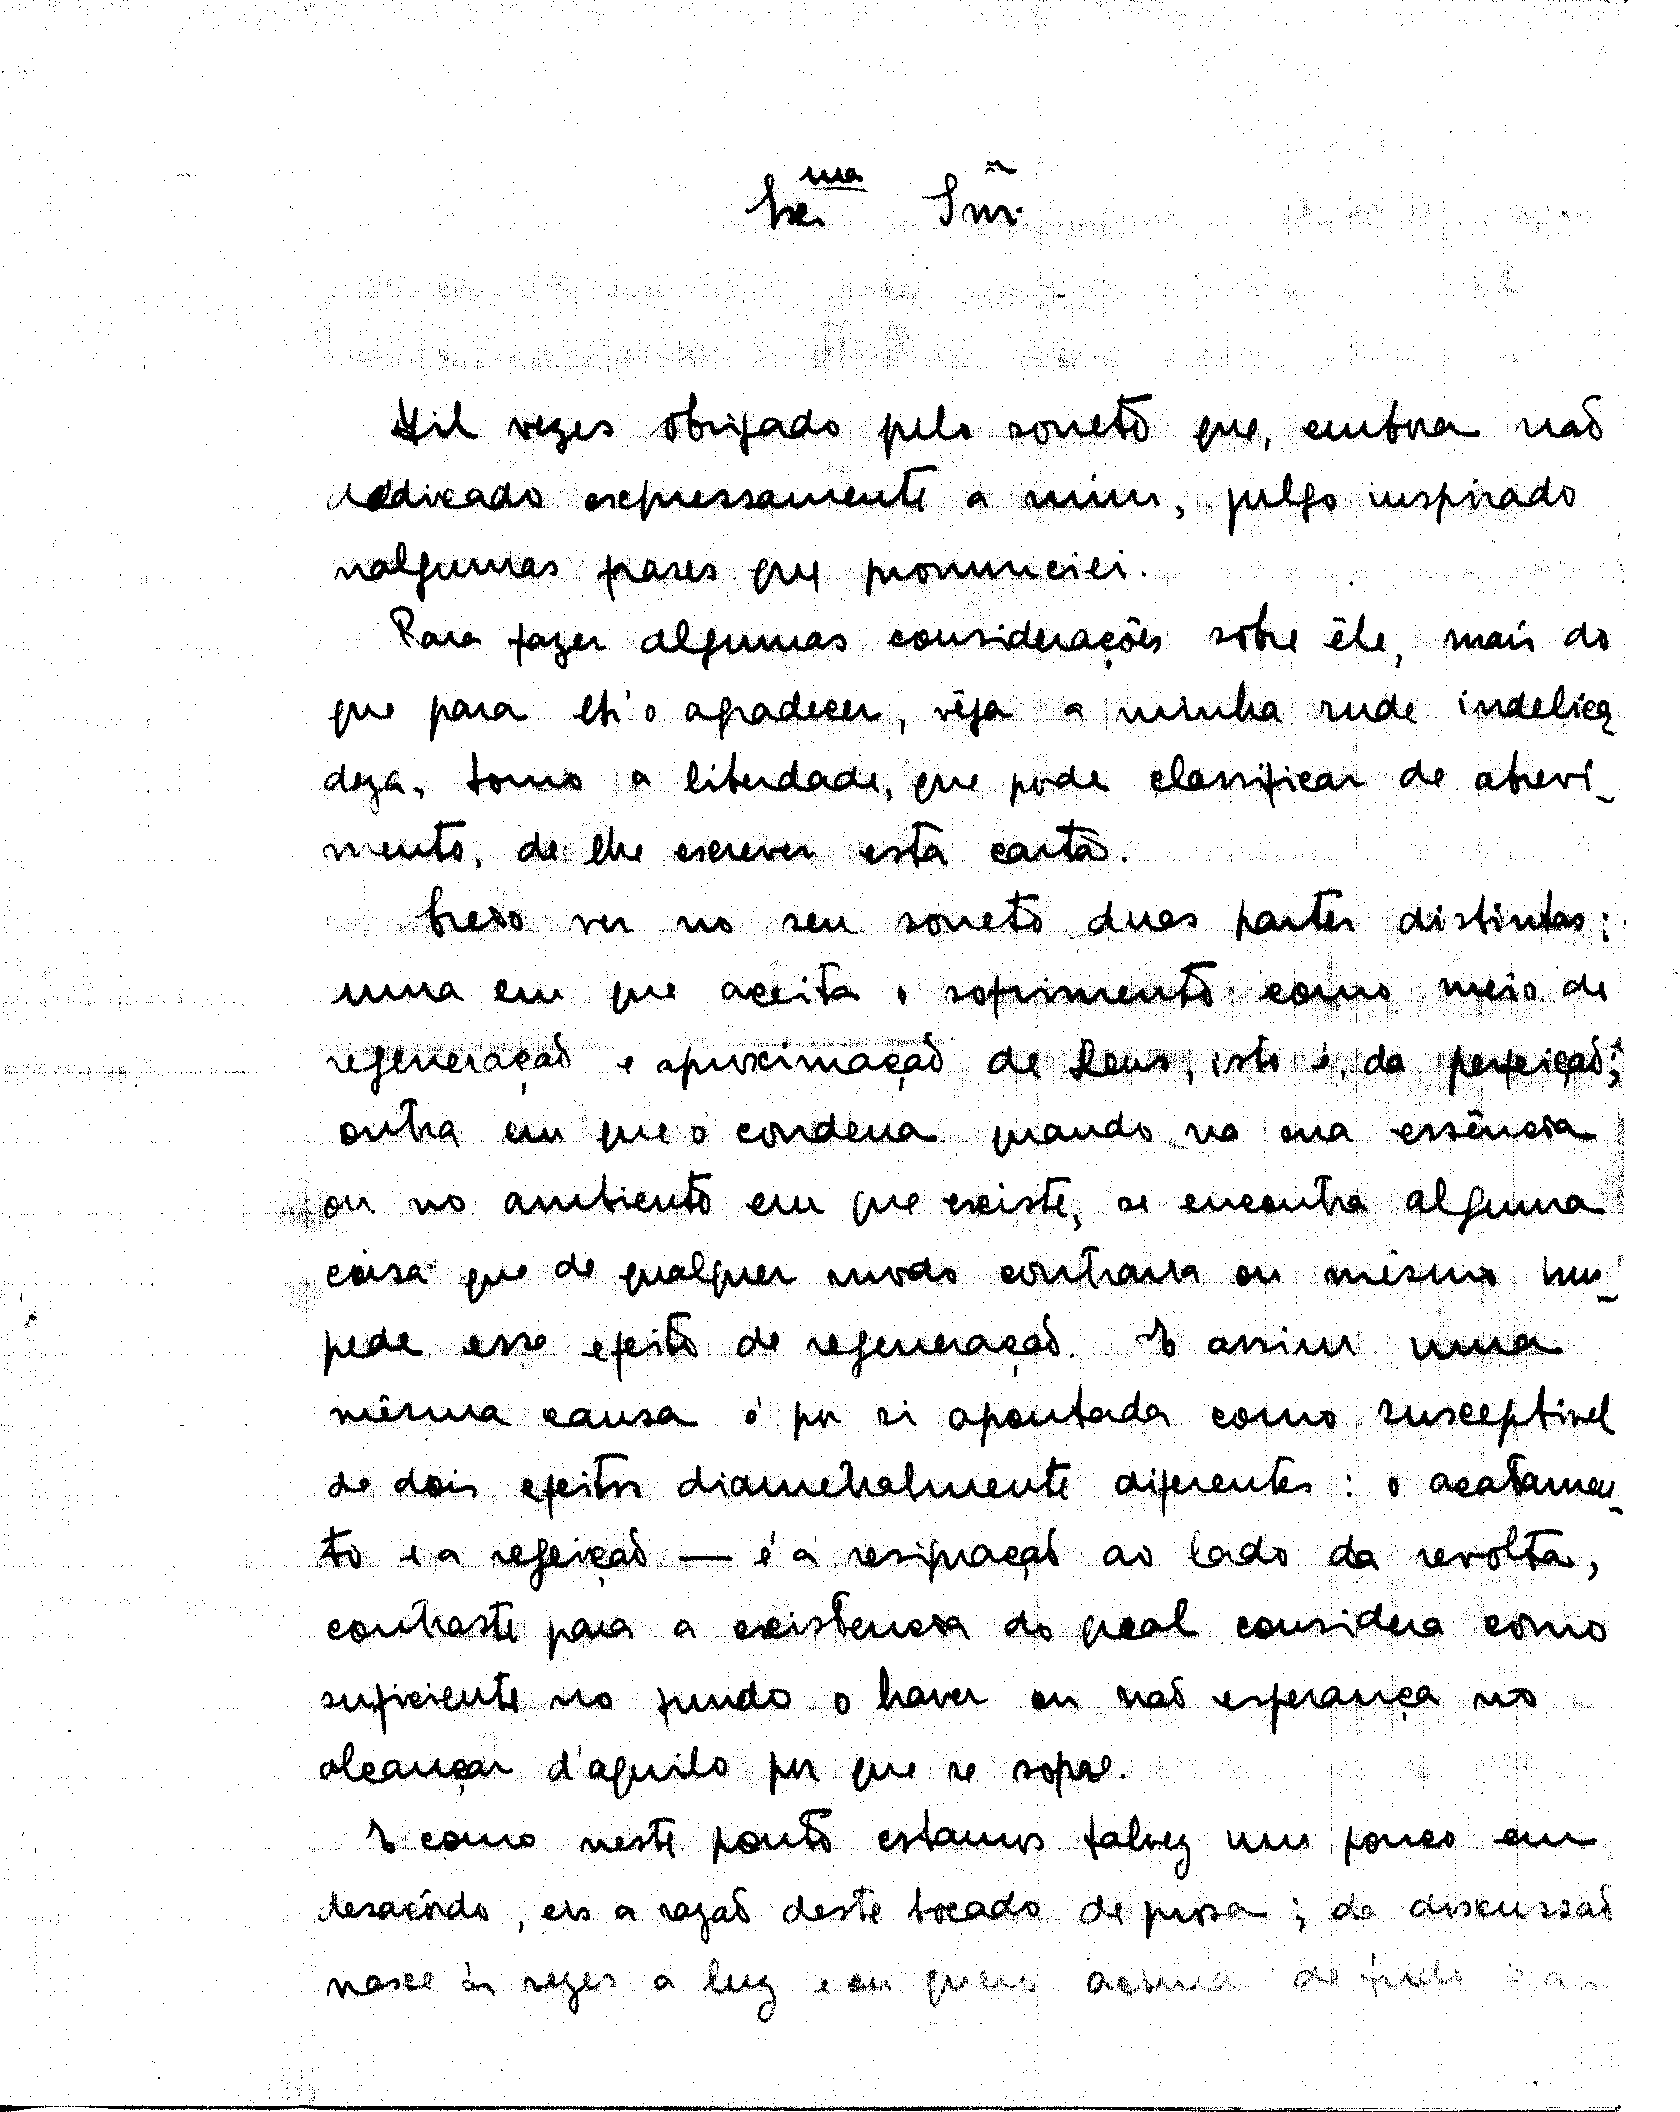 Ex.ma Snr.ª
Mil vezes obrigado pelo soneto que, embora não
dedicado expressamente a mim, julgo inspirado
nalgumas frases que pronunciei.
Para fazer algumas considerações sôbre êle, mais do
que para lh'o agradecer, vêja a minha rude indelica
deza, tomo a liberdade, que pode classificar de atrevi-
mento, de lhe escrever esta carta.
Creio ver no seu soneto duas partes distintas:
uma em que aceita o sofrimento como meio de
regeneração e aproximação de Deus, isto é, da perfeição;
outra em que o condena quando na sua essência
ou no ambiento em que existe, se encontra alguma
coisa que de qualquer modo contraria ou mêsmo im-
pede esse efeito de regeneração. E assim uma
mêsma causa é por si apontada como susceptivel
de dois efeitos diametralmente diferentes: o acatamen-
to e a rejeição — é a resignação ao lado da revolta,
contraste para a existência do qual considera como
suficiente no fundo o haver ou não esperança no
alcançar d'aquilo por que se sofre.
E como neste ponto estamos talvez um pouco em
desacôrdo, eis a razão deste bocado de prosa; da discussão
nasce ás vezes a luz e eu quero acima de tudo